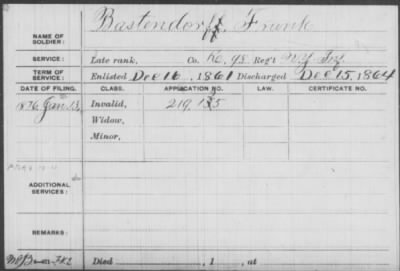 NAME OF SOLDIER: Bastendorff, Frank
SERVICE: Late rank, Co. K, 98 Reg't N.Y. Inf.
TERM OF SERVICE: Enlisted Dec 16, 1861 Discharged Dec 15, 1864
DATE OF FILING. CLASS. APPLICATION NO. LAW. CERTIFICATE NO.
1876 Jan 13, Invalid, 219,135
Widow,
Minor,
ADDITIONAL SERVICES:
REMARKS:
Died , 1 , at